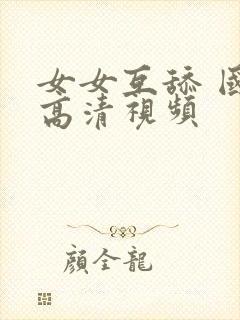 女女互舔 國
高清視頻
顔全龍